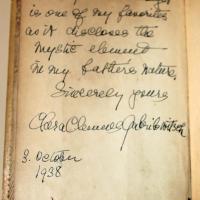 is one of my favorites
as it discloses the
mystic element
in my father's nature,
Sincerely yours
Clara Clemens Gabrilowitsch
3. October
1938